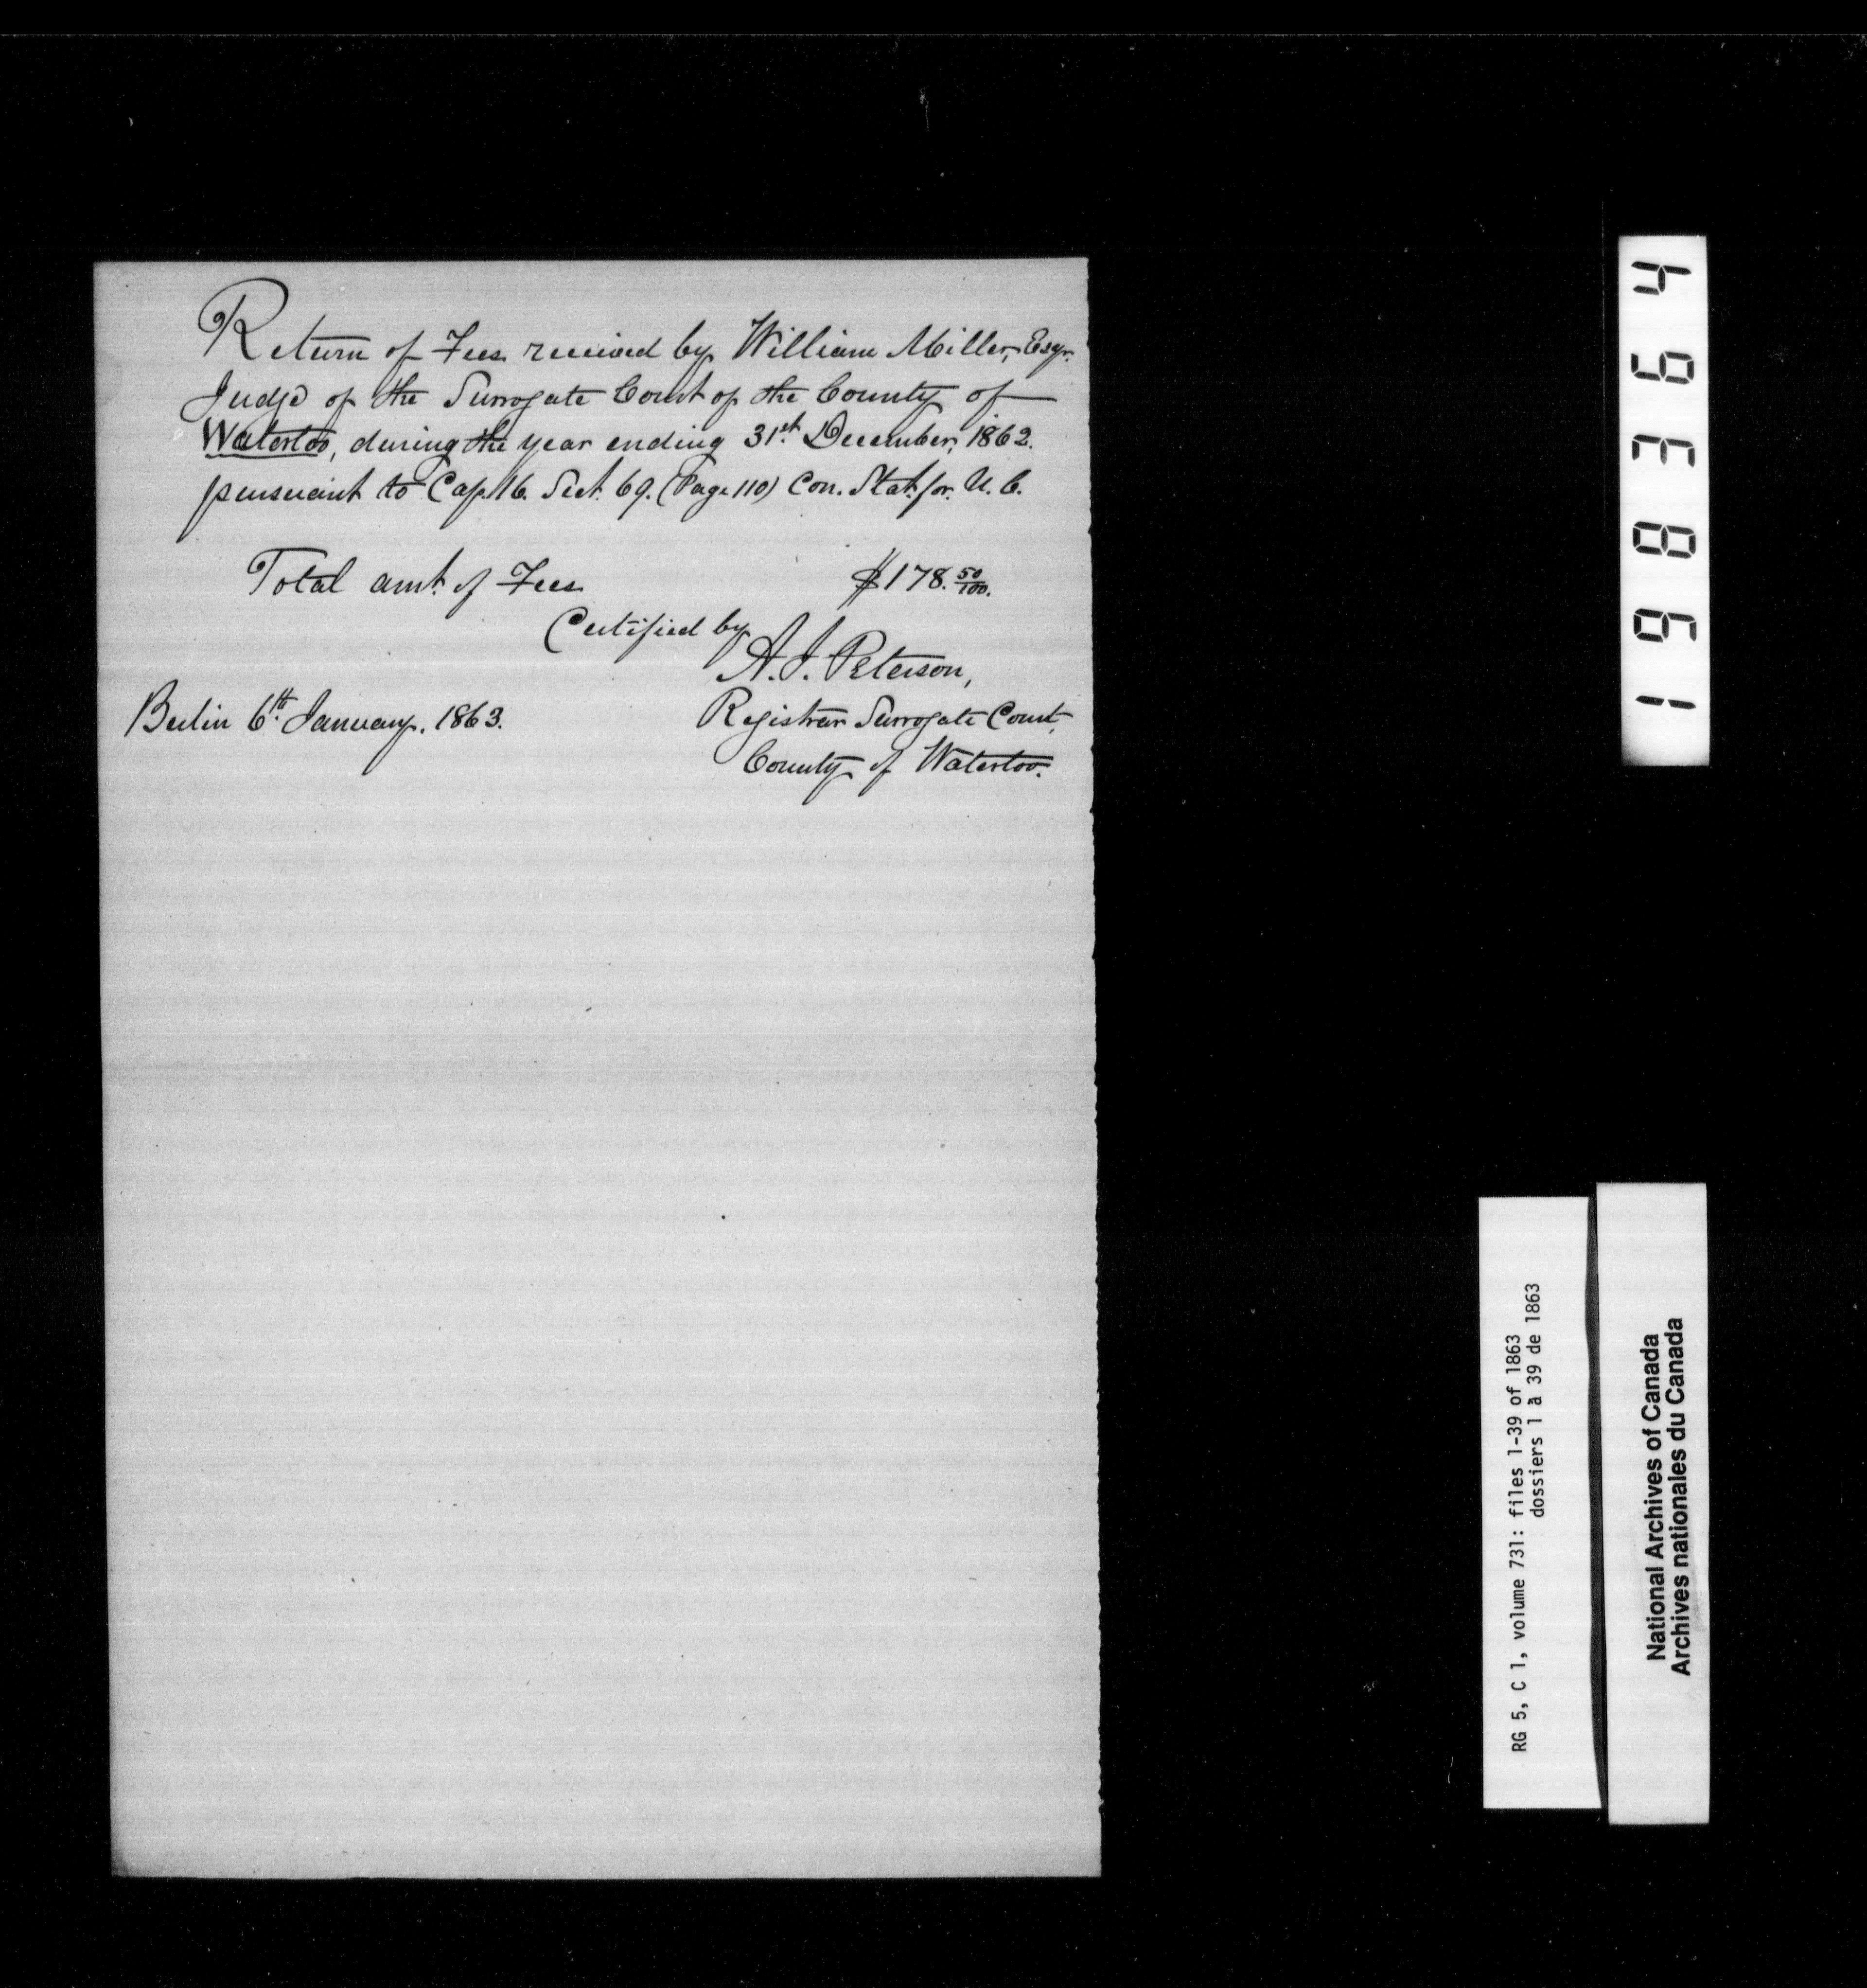 Return of Fees received by William Miller, Esqr.
Judge of the Surrogate Court of the County of
Waterloo, during the year ending 31st December, 1862.
pursuant to Cap. 16. Sect. 69. (Page 110) Con. Stat. for. U. C.
Total amt. of Fees $178. 50/100.
Certified by
A. J. Peterson,
Berlin 6th. January. 1863. Registrar Surrogate Court,
County of Waterloo.
198364
RG 5, C 1, volume 731: files 1-39 of 1863
dossiers 1 à 39 de 1863
National Archives of Canada
Archives nationales du Canada